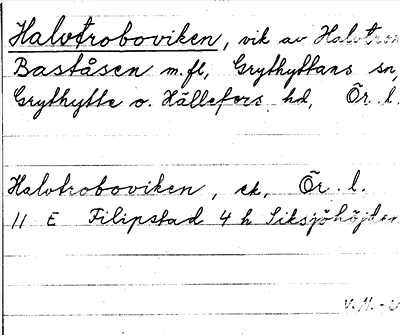 Halvtroboviken, vik av Halvtron
Baståsen m.fl, Grythyttans sn,
Grythytte o. Hällefors hd, Ör. l.
Halvtroboviken, ek, Ör. l.
11 E Filipstad 4 h Siksjöhöjden
V. M. -